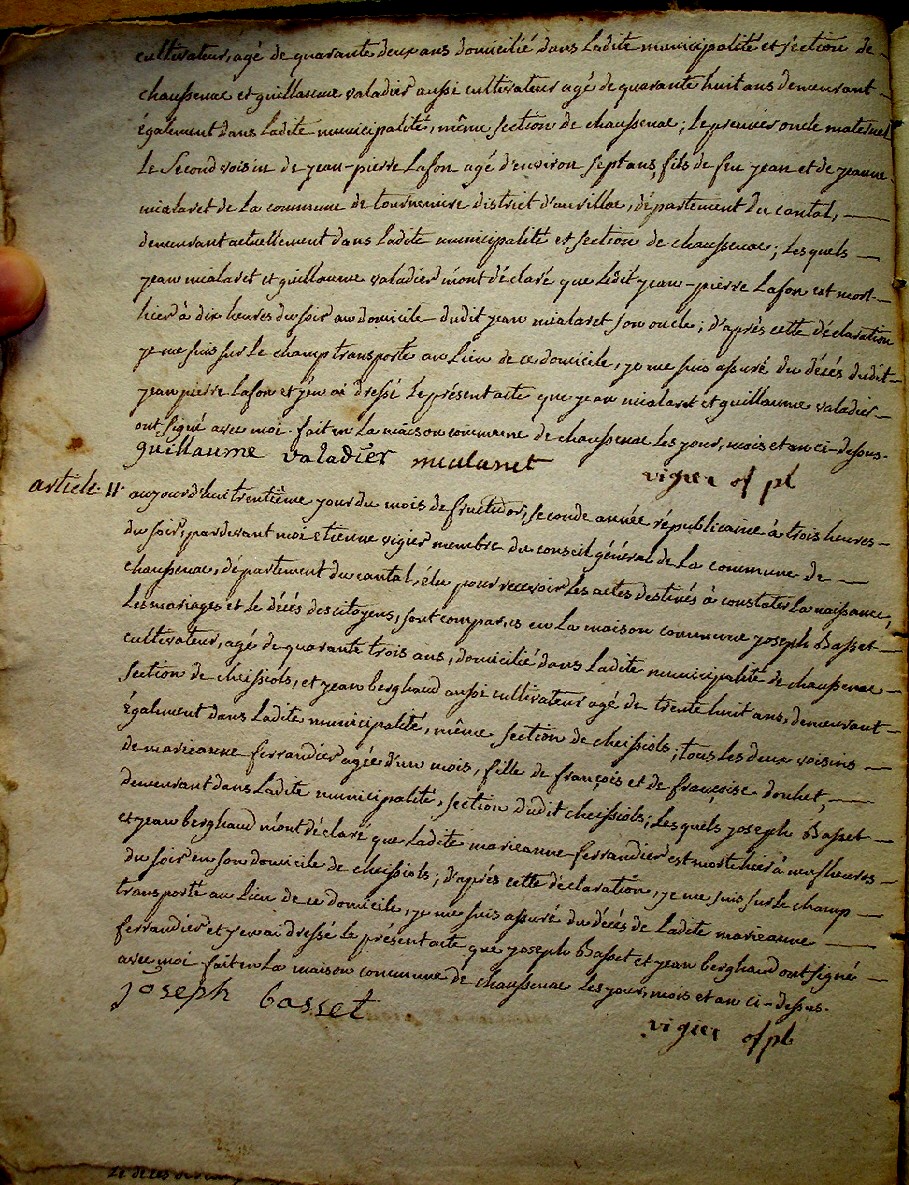 cultivateur, agé de quarante deux ans domicilié dans Ladite municipalité et section de
chaussenac et guillaume valadier aussi cultivateur agé de quarante huit ans demeurant
également dans Ladite municipalité, même section de chaussenac; Le premier oncle maternel
Le Second voisin de jean-pierre Lafon agé d'environ sept ans, fils de feu jean et de jeanne
mialaret de La commune de tournemire district d'aurillac, département du cantal,
demeurant actuellement dans Ladite municipalité et section de chaussenac; Lesquels
jean mialaret et guillaume valadier m'ont déclaré que Ledit jean-pierre Lafon est mort
hier à dix heures du soir au domicile dudit jean mialaret son oncle; d'après cette déclaration
je me suis sur Le champ transporté au Lieu de ce domicile, je me suis assuré du décés dudit
jean pierre Lafon et j'en ai dressé Le présent acte que jean mialaret et guillaume valadier
ont signé avec moi. fait en La maison commune de chaussenac Les jour, mois et an ci-dessus.
guillaume valadier mialaret
vigier of pl
article 11. aujourd'hui trentième jour du mois de fructidor, seconde année républicaine à trois heures
du soir, pardevant moi etienne vigier membre du conseil général de La commune de
chaussenac, département du cantal, élu pour recevoir Les actes destinés à constater La naissance,
Les mariages et Le décés des citoyens, sont comparus en La maison commune joseph Basset
cultivateur, agé de quarante trois ans, domicilié dans Ladite municipalité de chaussenac
section de cheissiols, et jean berghaud aussi cultivateur agé de trente huit ans demeurant
également dans Ladite municipalité, même section de cheissiols; tous Les deux voisins
de marieanne ferrandier agée d'un mois, fille de françois et de françoise douhet,
demeurant dans Ladite municipalité, section dudit cheissiols; Lesquels joseph Basset
et jean berghaud m'ont déclaré que Ladite marieanne ferrandier est morte hier à neuf heures
du soir en son domicile de cheissiols; d'après cette déclaration, je me suis sur Le champ
transporté au Lieu de ce domicile, je me suis assuré du décés de Ladite marieanne
ferrandier et j'en ai dressé Le présent acte que joseph Basset et jean berghaud ont signé
avec moi. fait en La maison commune de chaussenac Les jour, mois et an ci-dessus.
joseph basset
vigier of pl